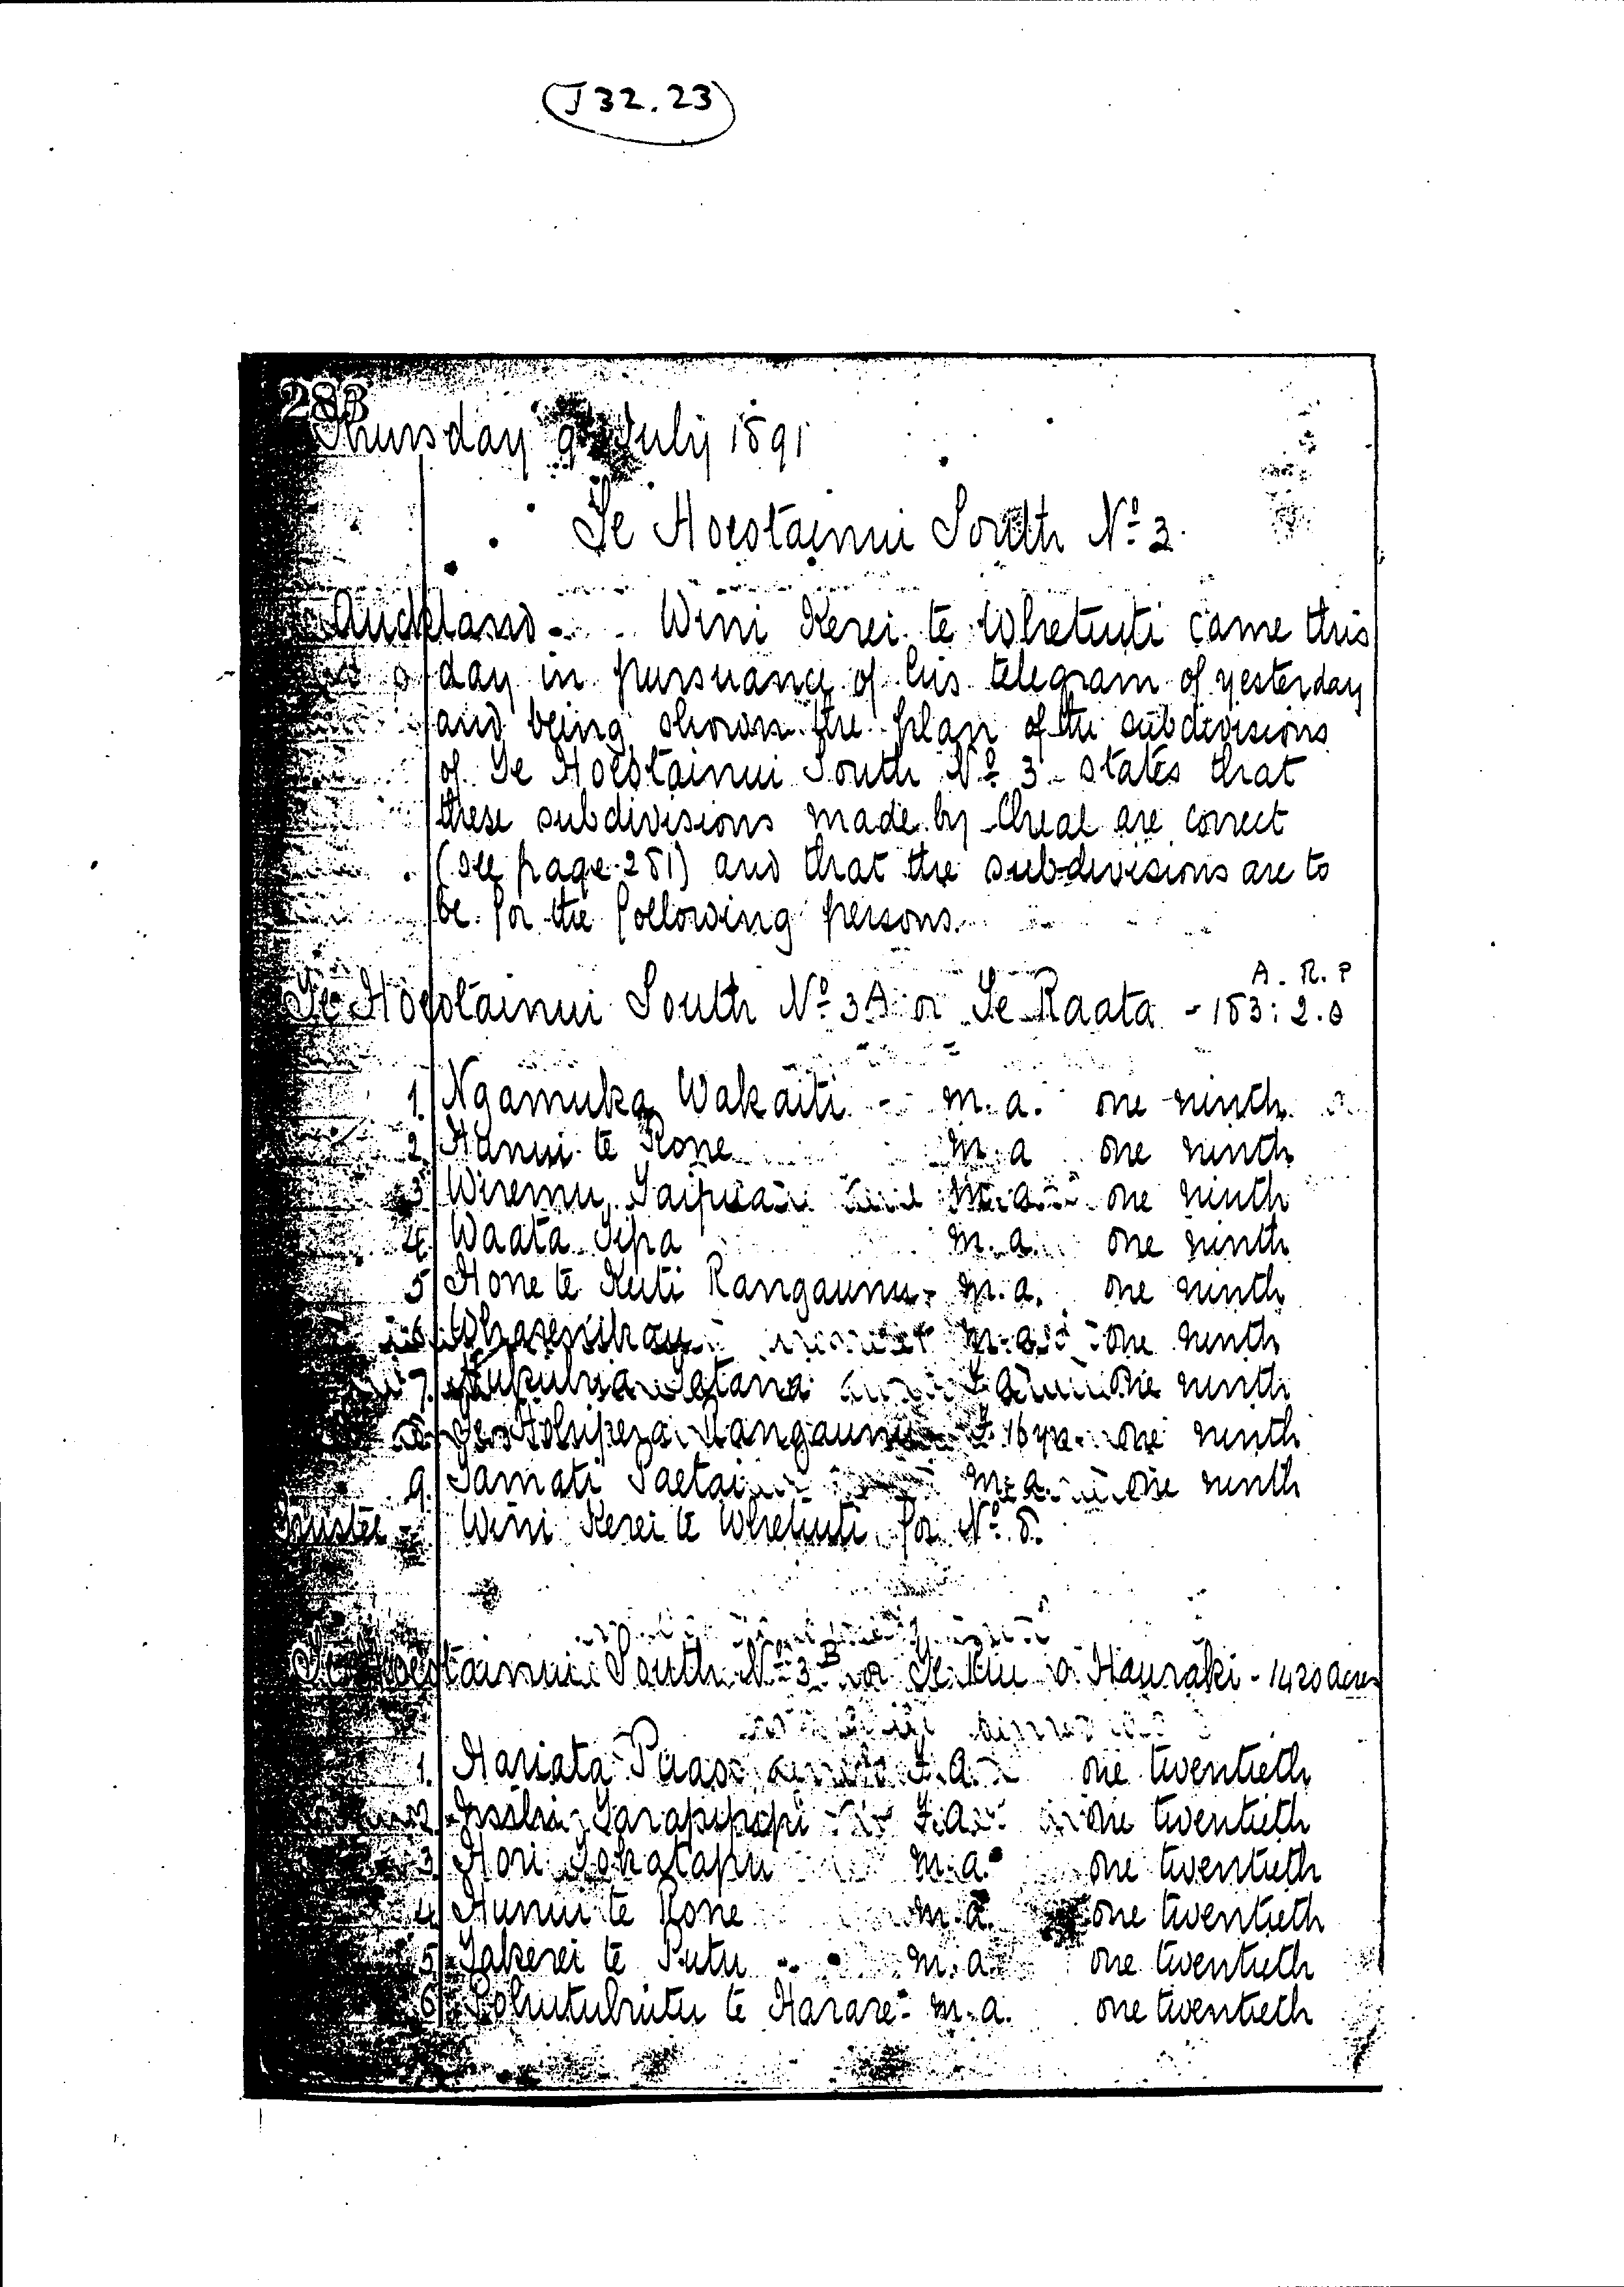 J 32.23
283
Thursday 9th July 1891
Te Hoeotainui South No. 3.
Auckland - Wini Kerei te Whetuiti came this
day in pursuance of his telegram of yesterday
and being shown the plan of the subdivisions
of Te Hoeotainui South No. 3 - states that
these subdivisions made by Cheal are correct
(see page 281) and that the subdivisions are to
be for the following persons.
A. R. P
Te Hoeotainui South No. 3A or Te Raata - 183: 2. 0
1. Ngamuka Wakaiti - m.a. one ninth
2. Hunui te Rone m.a one ninth
3 Wiremu m.a. one ninth
4. Waata Tipa m.a. one ninth
5 Hone te Kuti Rangaunu - m.a. one ninth
6 m.a. one ninth
7. Tatana one ninth
8 Rangaunu F 16 yrs. one ninth
9. Tamati Paetai m.a. one ninth
Trustee - Wini Kerei te Whetuiti for No. 8.
Te Hoeotainui South No. 3B or Te Kiu o Hauraki - 1420 acres
1. Hariata F.a. one twentieth
2. Tarapipipi F.a. one twentieth
3. Hori m.a. one twentieth
4. Hunui te Rone m.a. one twentieth
5 Takerei te Putu m.a. one twentieth
6 Pohutuhutu te Harare - m.a. one twentieth